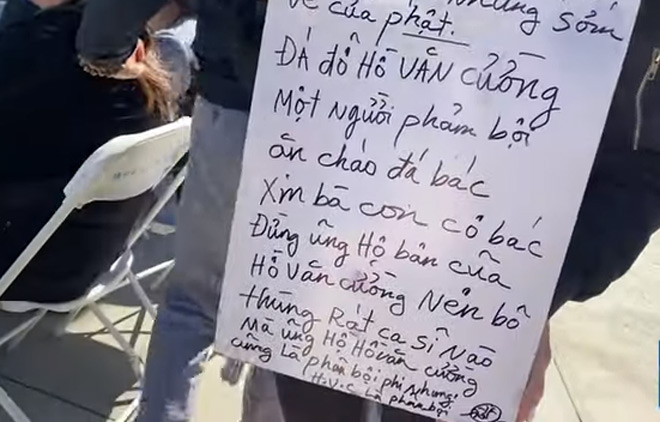 của phật.
ĐẢ ĐỒ HỒ VĂN CƯỜNG
Một người phản bội
ăn cháo đá bác
Xin bà con cô bác
Đừng ũng Hộ bản của
Hồ Văn cường Nên bỏ
thùng Rát ca sĩ nào
Mà ũng Hộ Hồ văn cường
cũng Là phản bội phi Nhung.
H.V.C Là phản bội